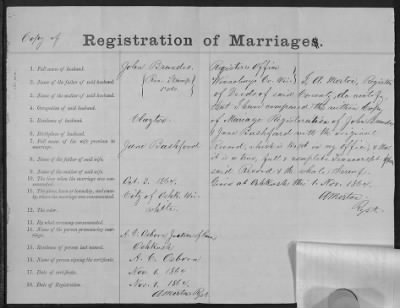 Copy of
Registration of Marriages.
1. Full name of husband. John Brandes
2. Name of the father of said husband.
3. Name of the mother of said husband.
4. Occupation of said husband.
5. Residence of husband. Clayton
6. Birthplace of husband.
7. Full name of wife previous to marriage. Jane Bashford
8. Name of the father of said wife.
9. Name of the mother of said wife.
10. The time when the marriage was consummated. Oct. 3. 1864.
11. The place, town or township, and county, where the marriage was consummated. City of Oshk
12. The color.
13. By what ceremony consummated.
14. Name of the person pronouncing marriage. A. C. Osborn Justice of
15. Residence of person last named. Oshkosh
16. Name of person signing the certificate. A. C. Osborn
17. Date of certificate. Nov. 1. 1864
18. Date of Registration. Nov. 1. 1864.
A Morton Regst.
Registers Office
Winnebago Co. Wis. I, A. Morton, Register
of Deeds of said County, do certify
that I have compared the within Copy
of Marriage Registration of John Brandes
& Jane Bashford with the original
Record, which is kept in my office, & that
it is a true, full & complete transcript from
said Record & the whole thereof.
Given at Oshkosh this 1 Nov. 1864.
A Morton
Regst.